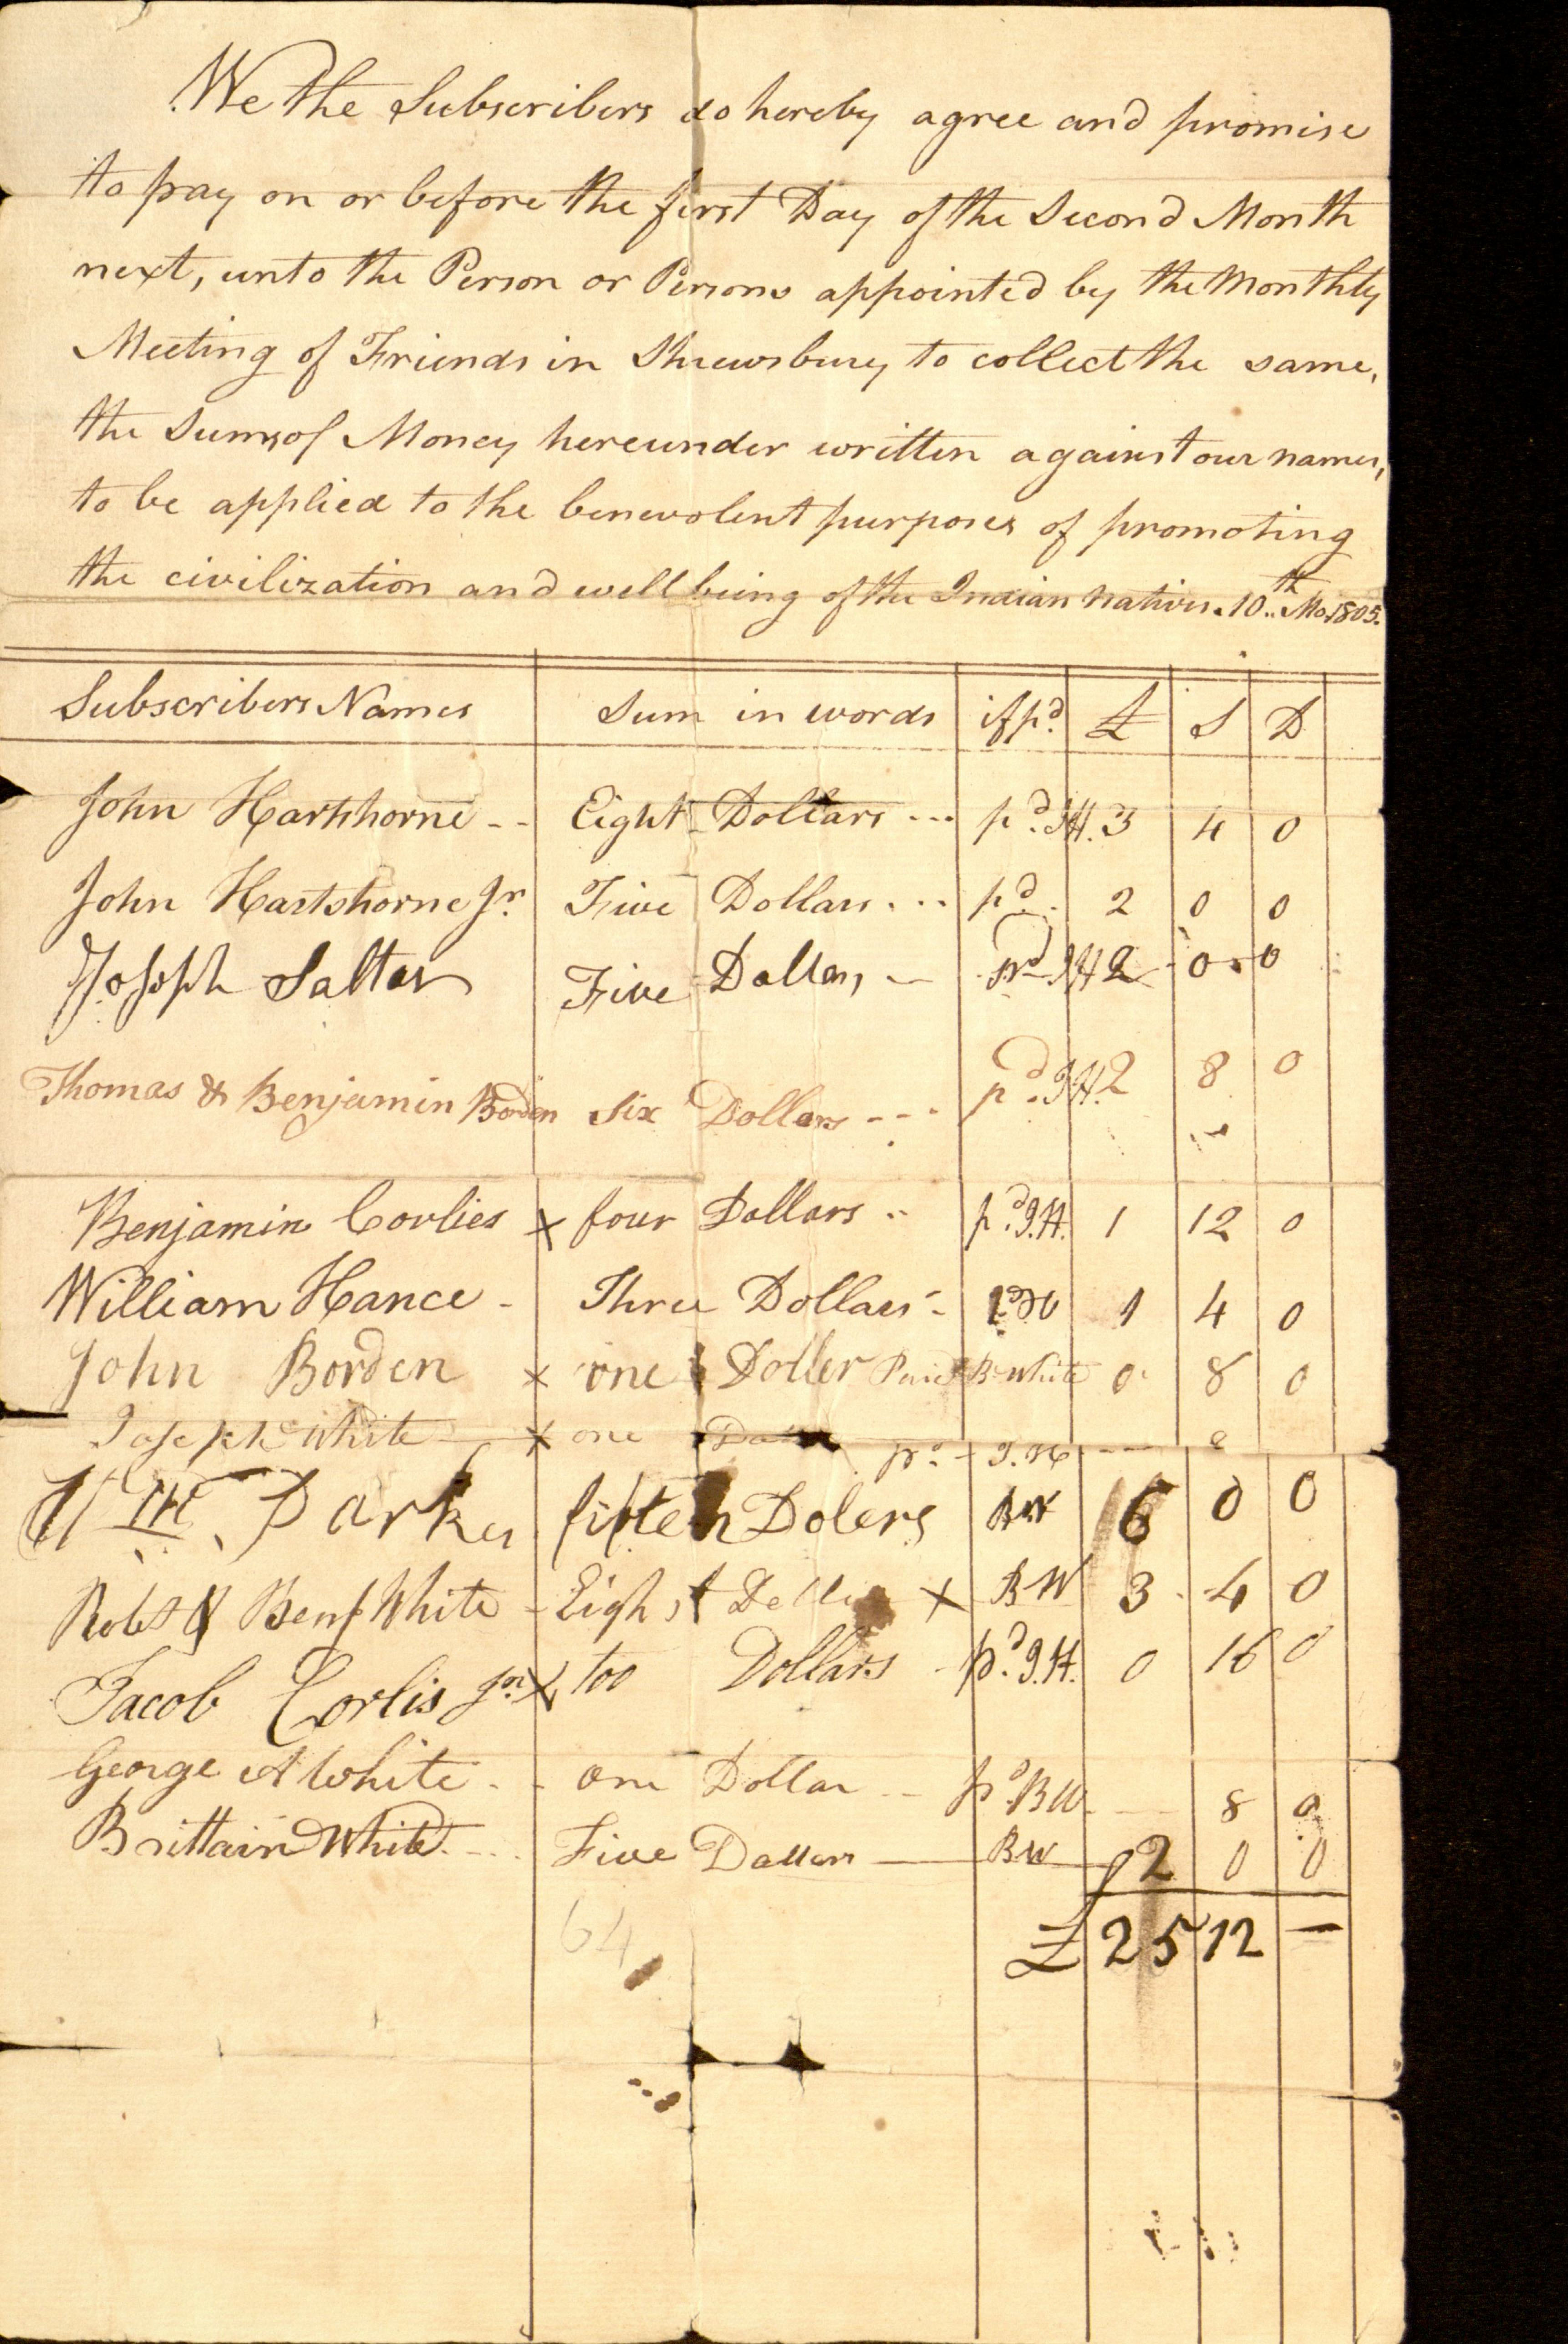 We the Subscribers do hereby agree and promise
to pay on or before the first Day of the Second Month
next, unto the Person or Persons appointed by the Monthly
Meeting of Friends in Shrewsbury to collect the same,
the Sums of Money hereunder written against our names,
to be applied to the benevolent purposes of promoting
the civilization and well being of the Indian natives. 10th Mo. 1805.
Subscribers Names Sum in words if pd. £ S D
John Hartshorne - - Eight Dollars --- pd. J.H. 3 4 0
John Hartshorne Jr. Five Dollars --- pd. 2 0 0
Joseph Salter Five Dollars - pd J H 2 0 0
Thomas & Benjamin Borden Six Dollars --- pd. J.H. 2 8 0
Benjamin Corlies x four Dollars -- pd. J.H. 1 12 0
William Hance - Three Dollars - 1 4 0
John Borden x one Doller Paid B White 0 8 0
Joseph White x one pd - J.H. --- 8
Wm. Parker fifteen Dolers BW 6 0 0
Robt & Benj White - Eight x BW 3 4 0
Jacob Corlis Jnr x too Dollars - pd. J.H. 0 16 0
George A White - - one Dollar -- pd BW -- 8 0
Brittain White --- Five Dollars BW 2 0 0
64 £ 25 12 —